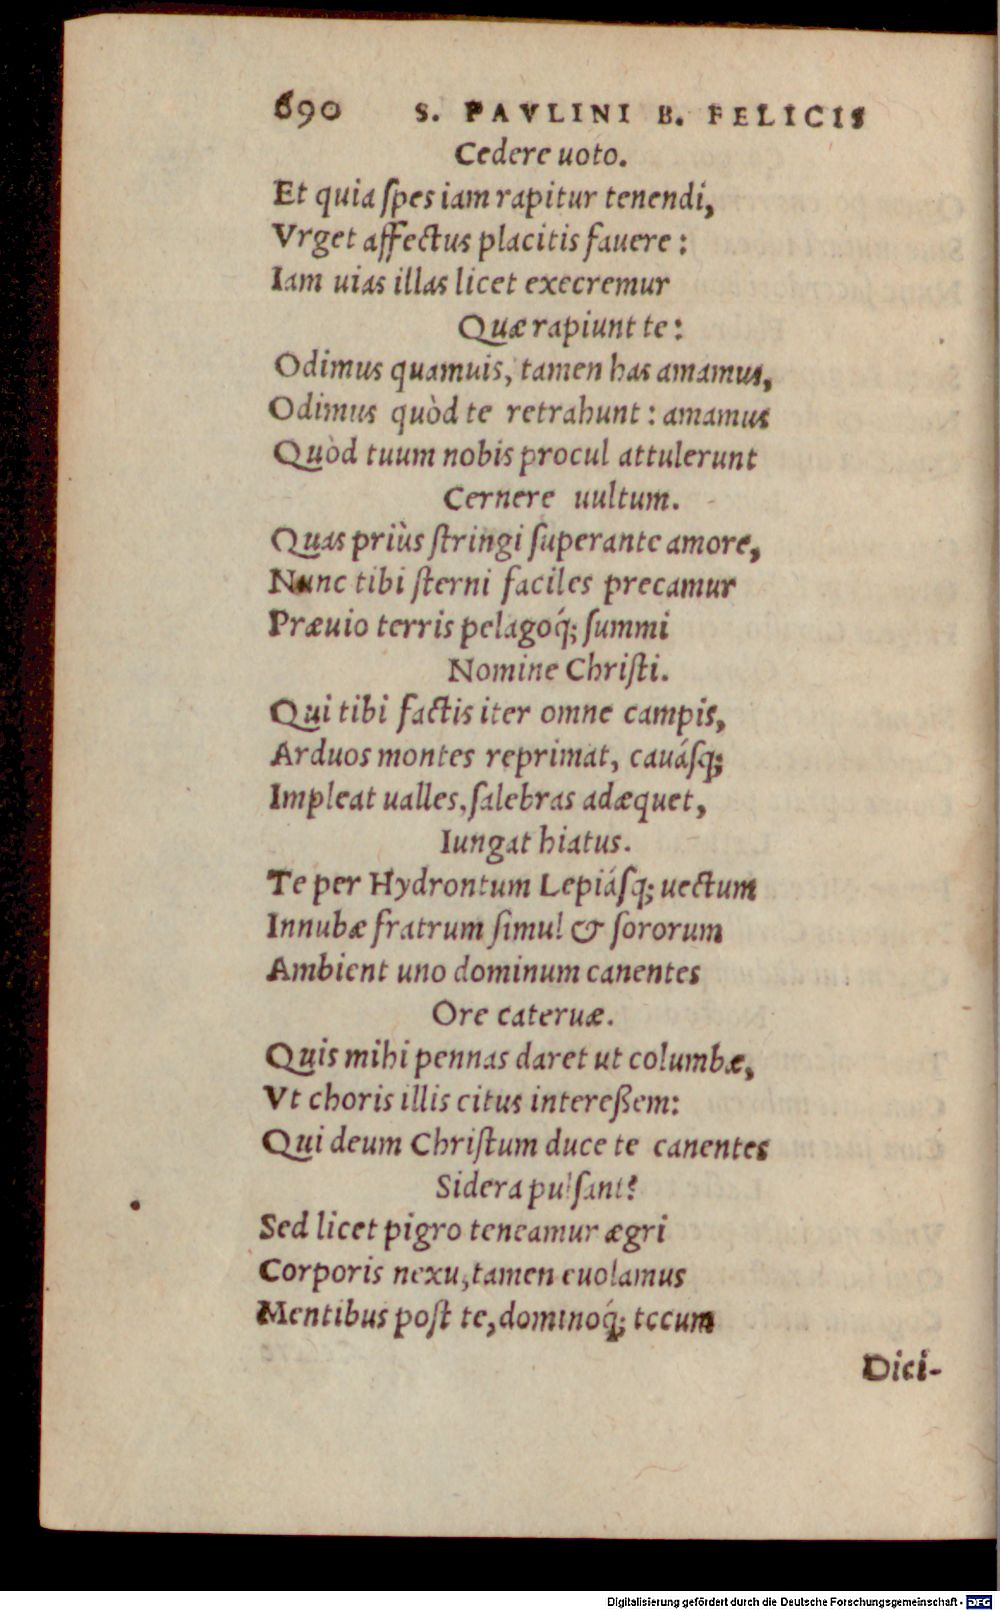 690 S. PAVLINI B. FELICIS
Cedere uoto.
Et quia ſpes iam rapitur tenendi,
Vrget affectus placitis fauere:
Iam uias illas licet execremur
Quæ rapiunt te:
Odimus quamuis, tamen has amamus,
Odimus quòd te retrahunt: amamus
Quòd tuum nobis procul attulerunt
Cernere uultum.
Quas priùs ſtringi ſuperante amore,
Nunc tibi ſterni faciles precamur
Præuio terris pelagoq́; ſummi
Nomine Chriſti.
Qui tibi factis iter omne campis,
Arduos montes reprimat, cauáſq;
Impleat ualles, ſalebras adæquet,
Iungat hiatus.
Te per Hydrontum Lepiáſq; uectum
Innubæ fratrum ſimul & ſororum
Ambient uno dominum canentes
Ore cateruæ.
Quis mihi pennas daret ut columbæ,
Vt choris illis citus intereßem:
Qui deum Chriſtum duce te canentes
Sidera pulſant?
Sed licet pigro teneamur ægri
Corporis nexu, tamen euolamus
Mentibus poſt te, dominoq́; tecum
Dici-
Digitalisierung gefördert durch die Deutsche Forschungsgemeinschaft - DFG